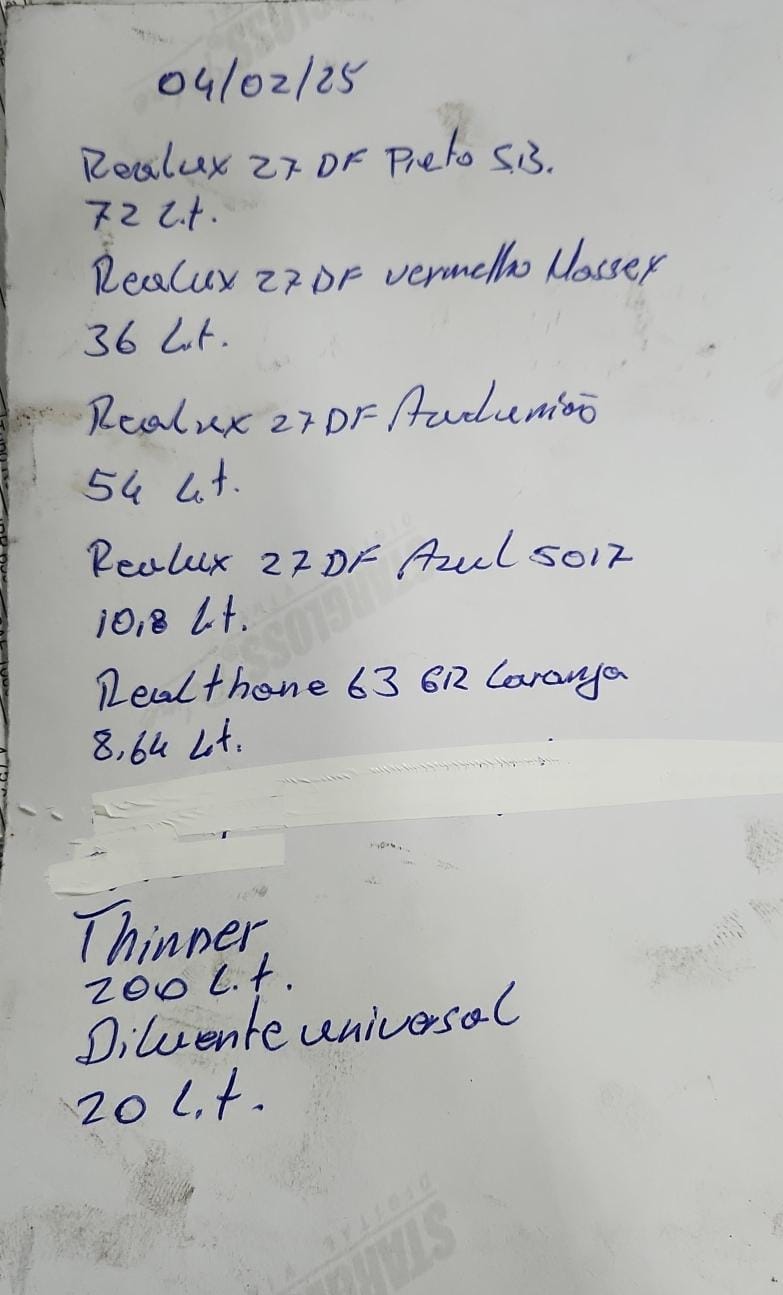 04/02/25
Realux 27 DF Preto S.B.
72 Lt.
Realux 27 DF vermelho Massey
36 Lt.
Realux 27 DF
54 Lt.
Realux 27 DF Azul 5017
10,8 Lt.
Realthane 63 612 Laranja
8,64 Lt.
Thinner
200 L.t.
Diluente universal
20 L.t.
STARGLOSS
DIGITAL